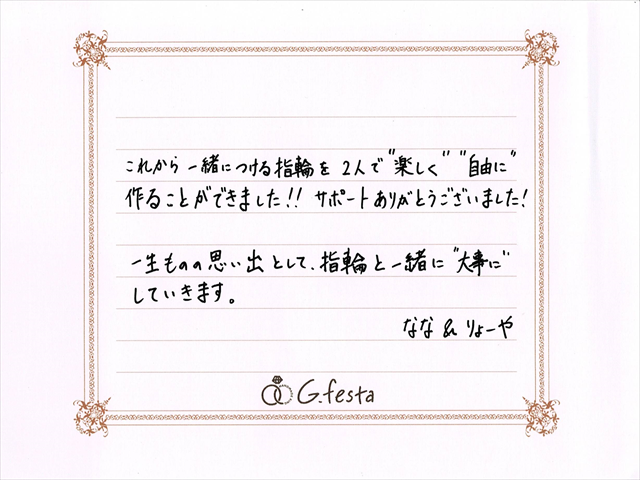 これから一緒につける指輪を2人で"楽しく" "自由に"
作ることができました!! サポートありがとうございました!
一生ものの思い出として、指輪と一緒に"大事に"
していきます。
なな & りょーや
G.festa